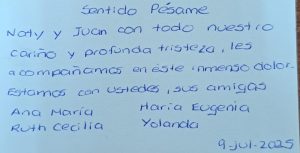 Sentido Pésame
Naty y Juan con todo nuestro
cariño y profunda tristeza, les
acompañamos en este inmenso dolor.
Estamos con ustedes, sus amigas
Ana María María Eugenia
Ruth Cecilia Yolanda
9-jul-2025